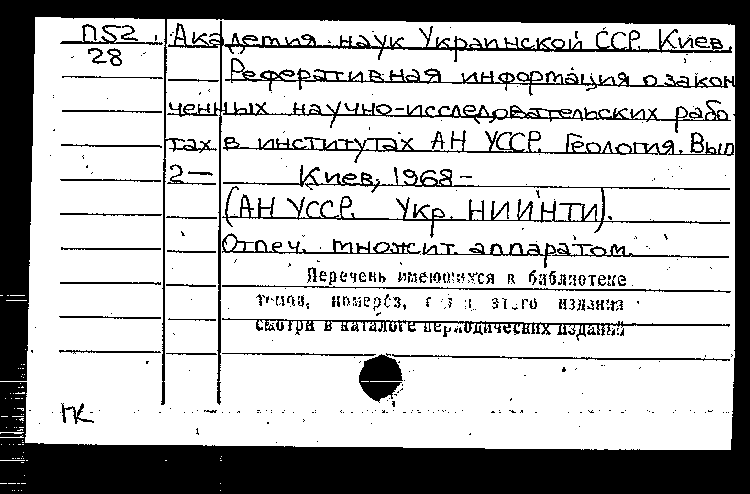 П52 . Академия наук Украинской ССР. Киев.
28
Реферативная информация о закон
ченных научно-исследовательских рабо
тах в институтах АН УССР. Геология. Вып
2— Киев, 1968-
(АН УССР. Укр. НИИНТИ).
Отпеч. множит. аппаратом.
Перечень имеющихся в библиотеке
томов, номеров, этого издания
смотри в каталоге периодических изданий
ПК